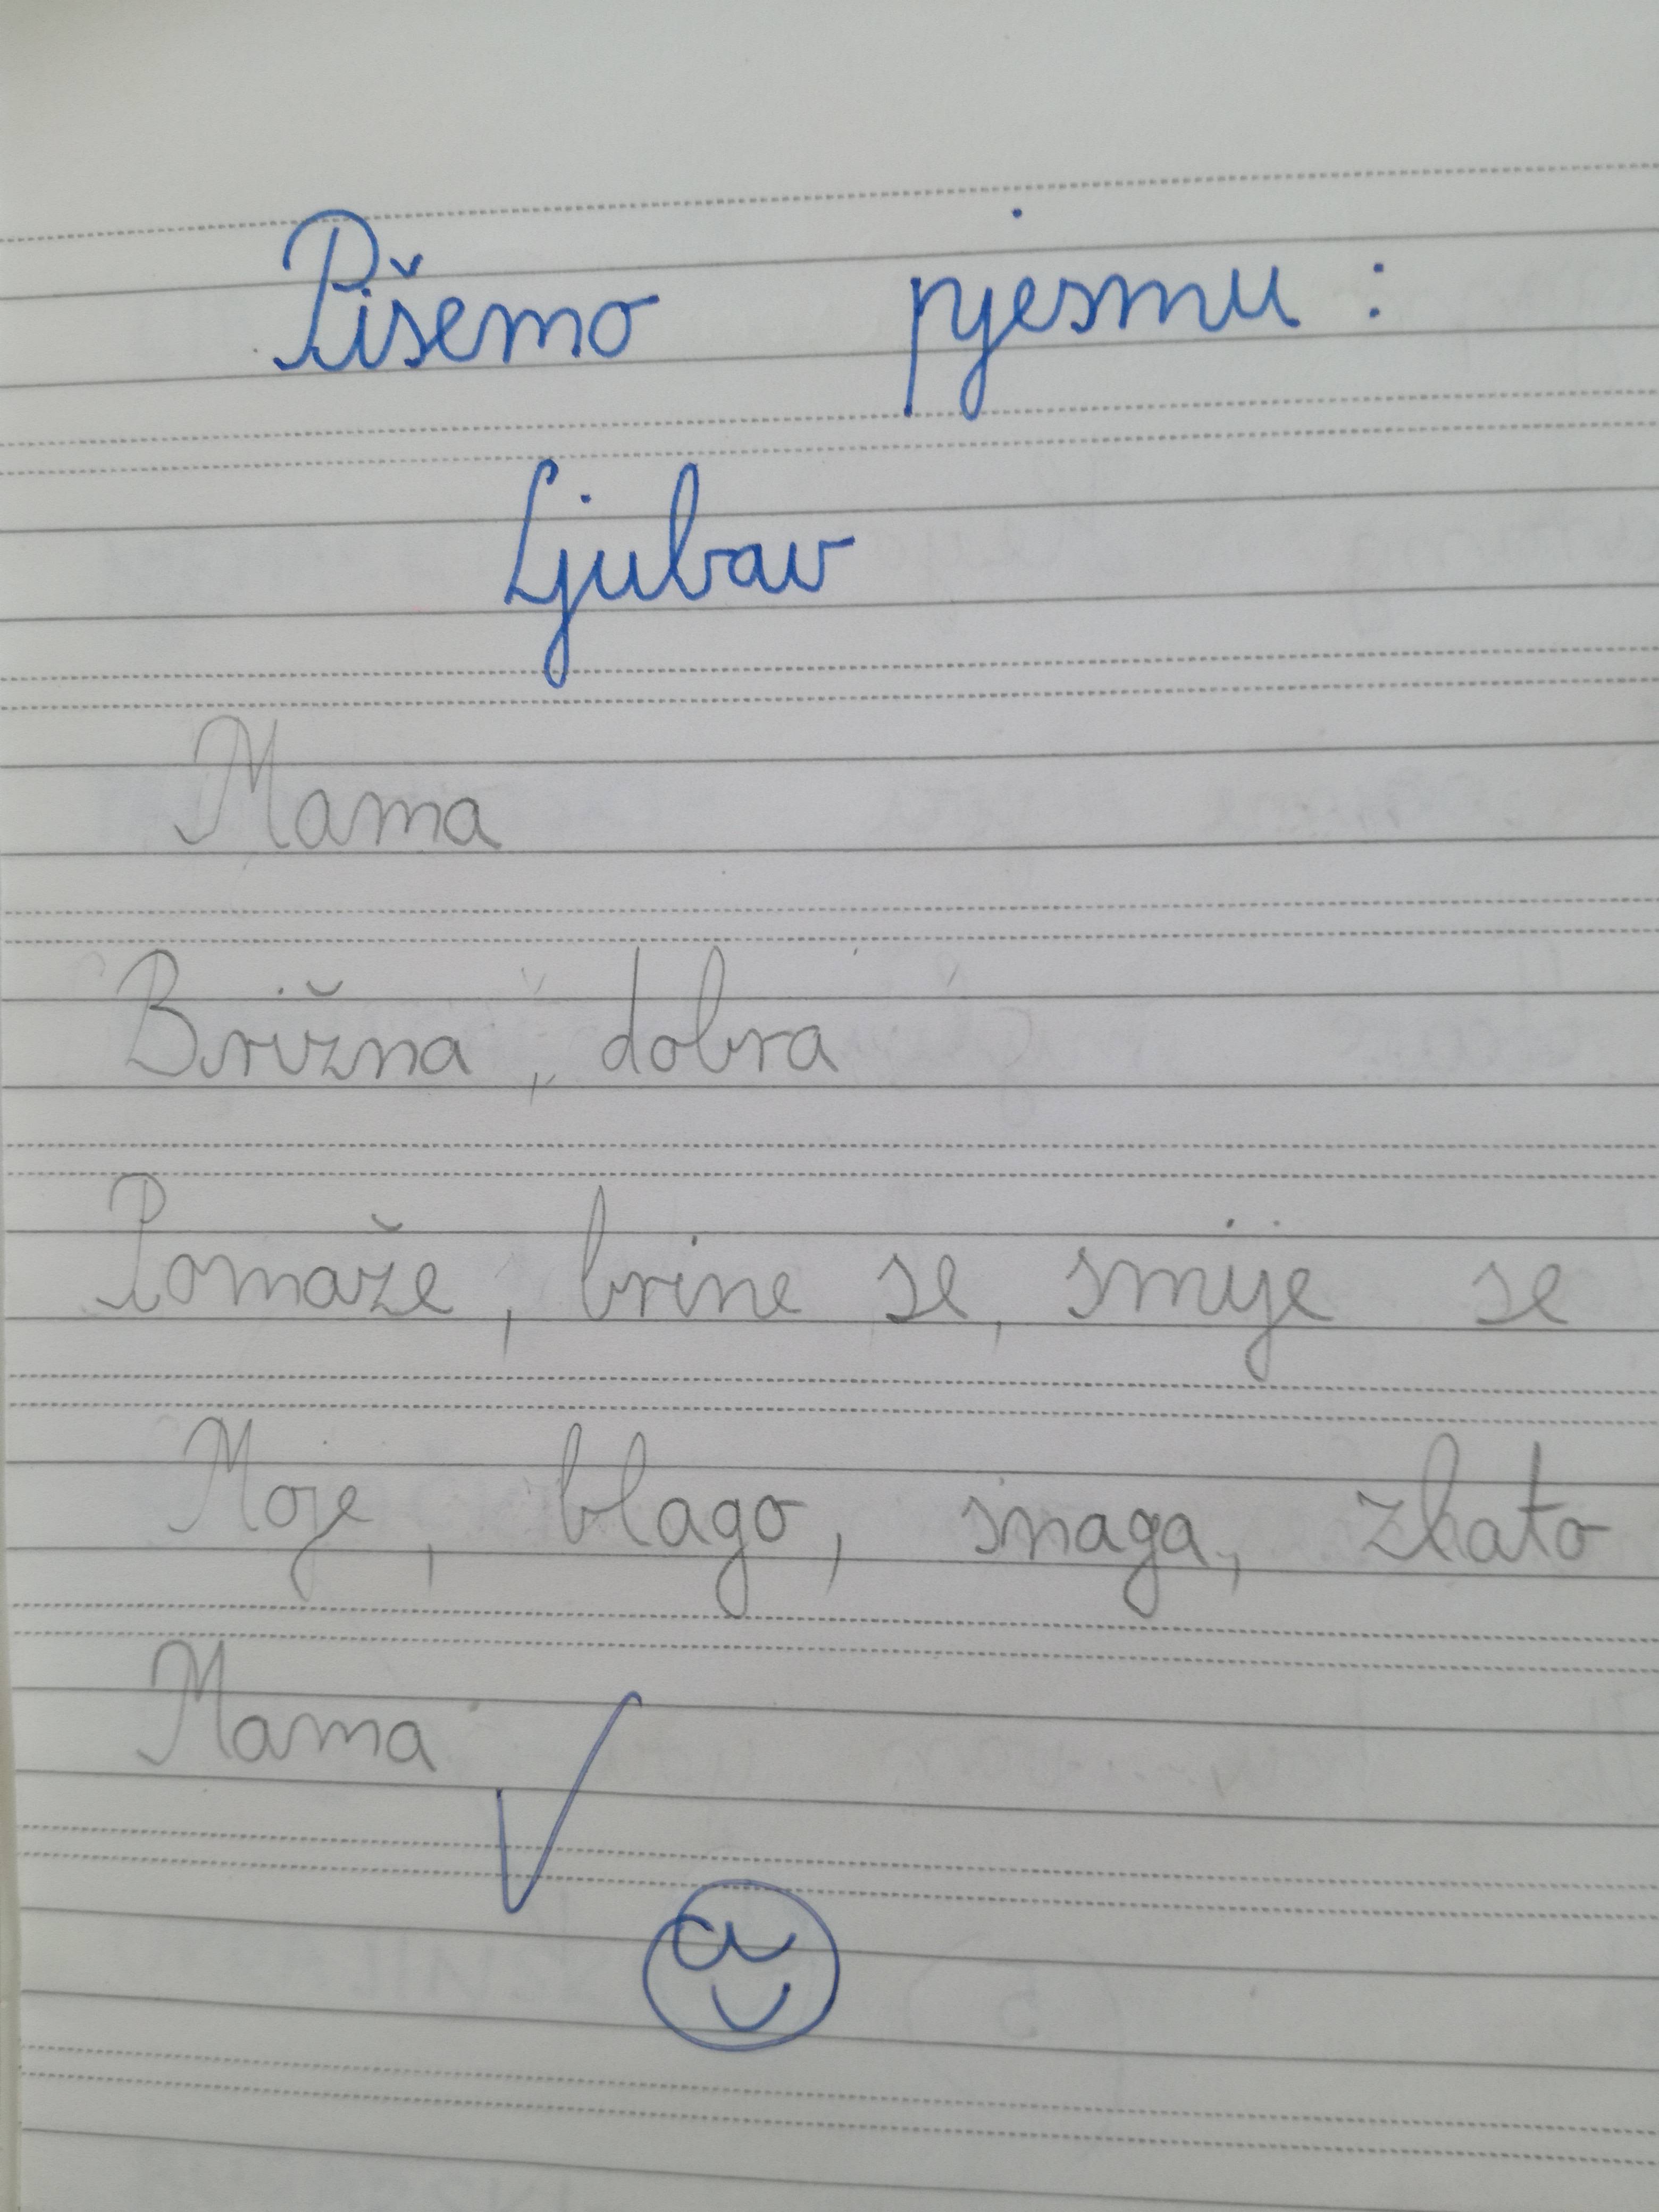 Pišemo pjesmu:
Ljubav
Mama
Brižna, dobra
Pomaže, brine se, smije se
Moje, blago, snaga, zlato
Mama